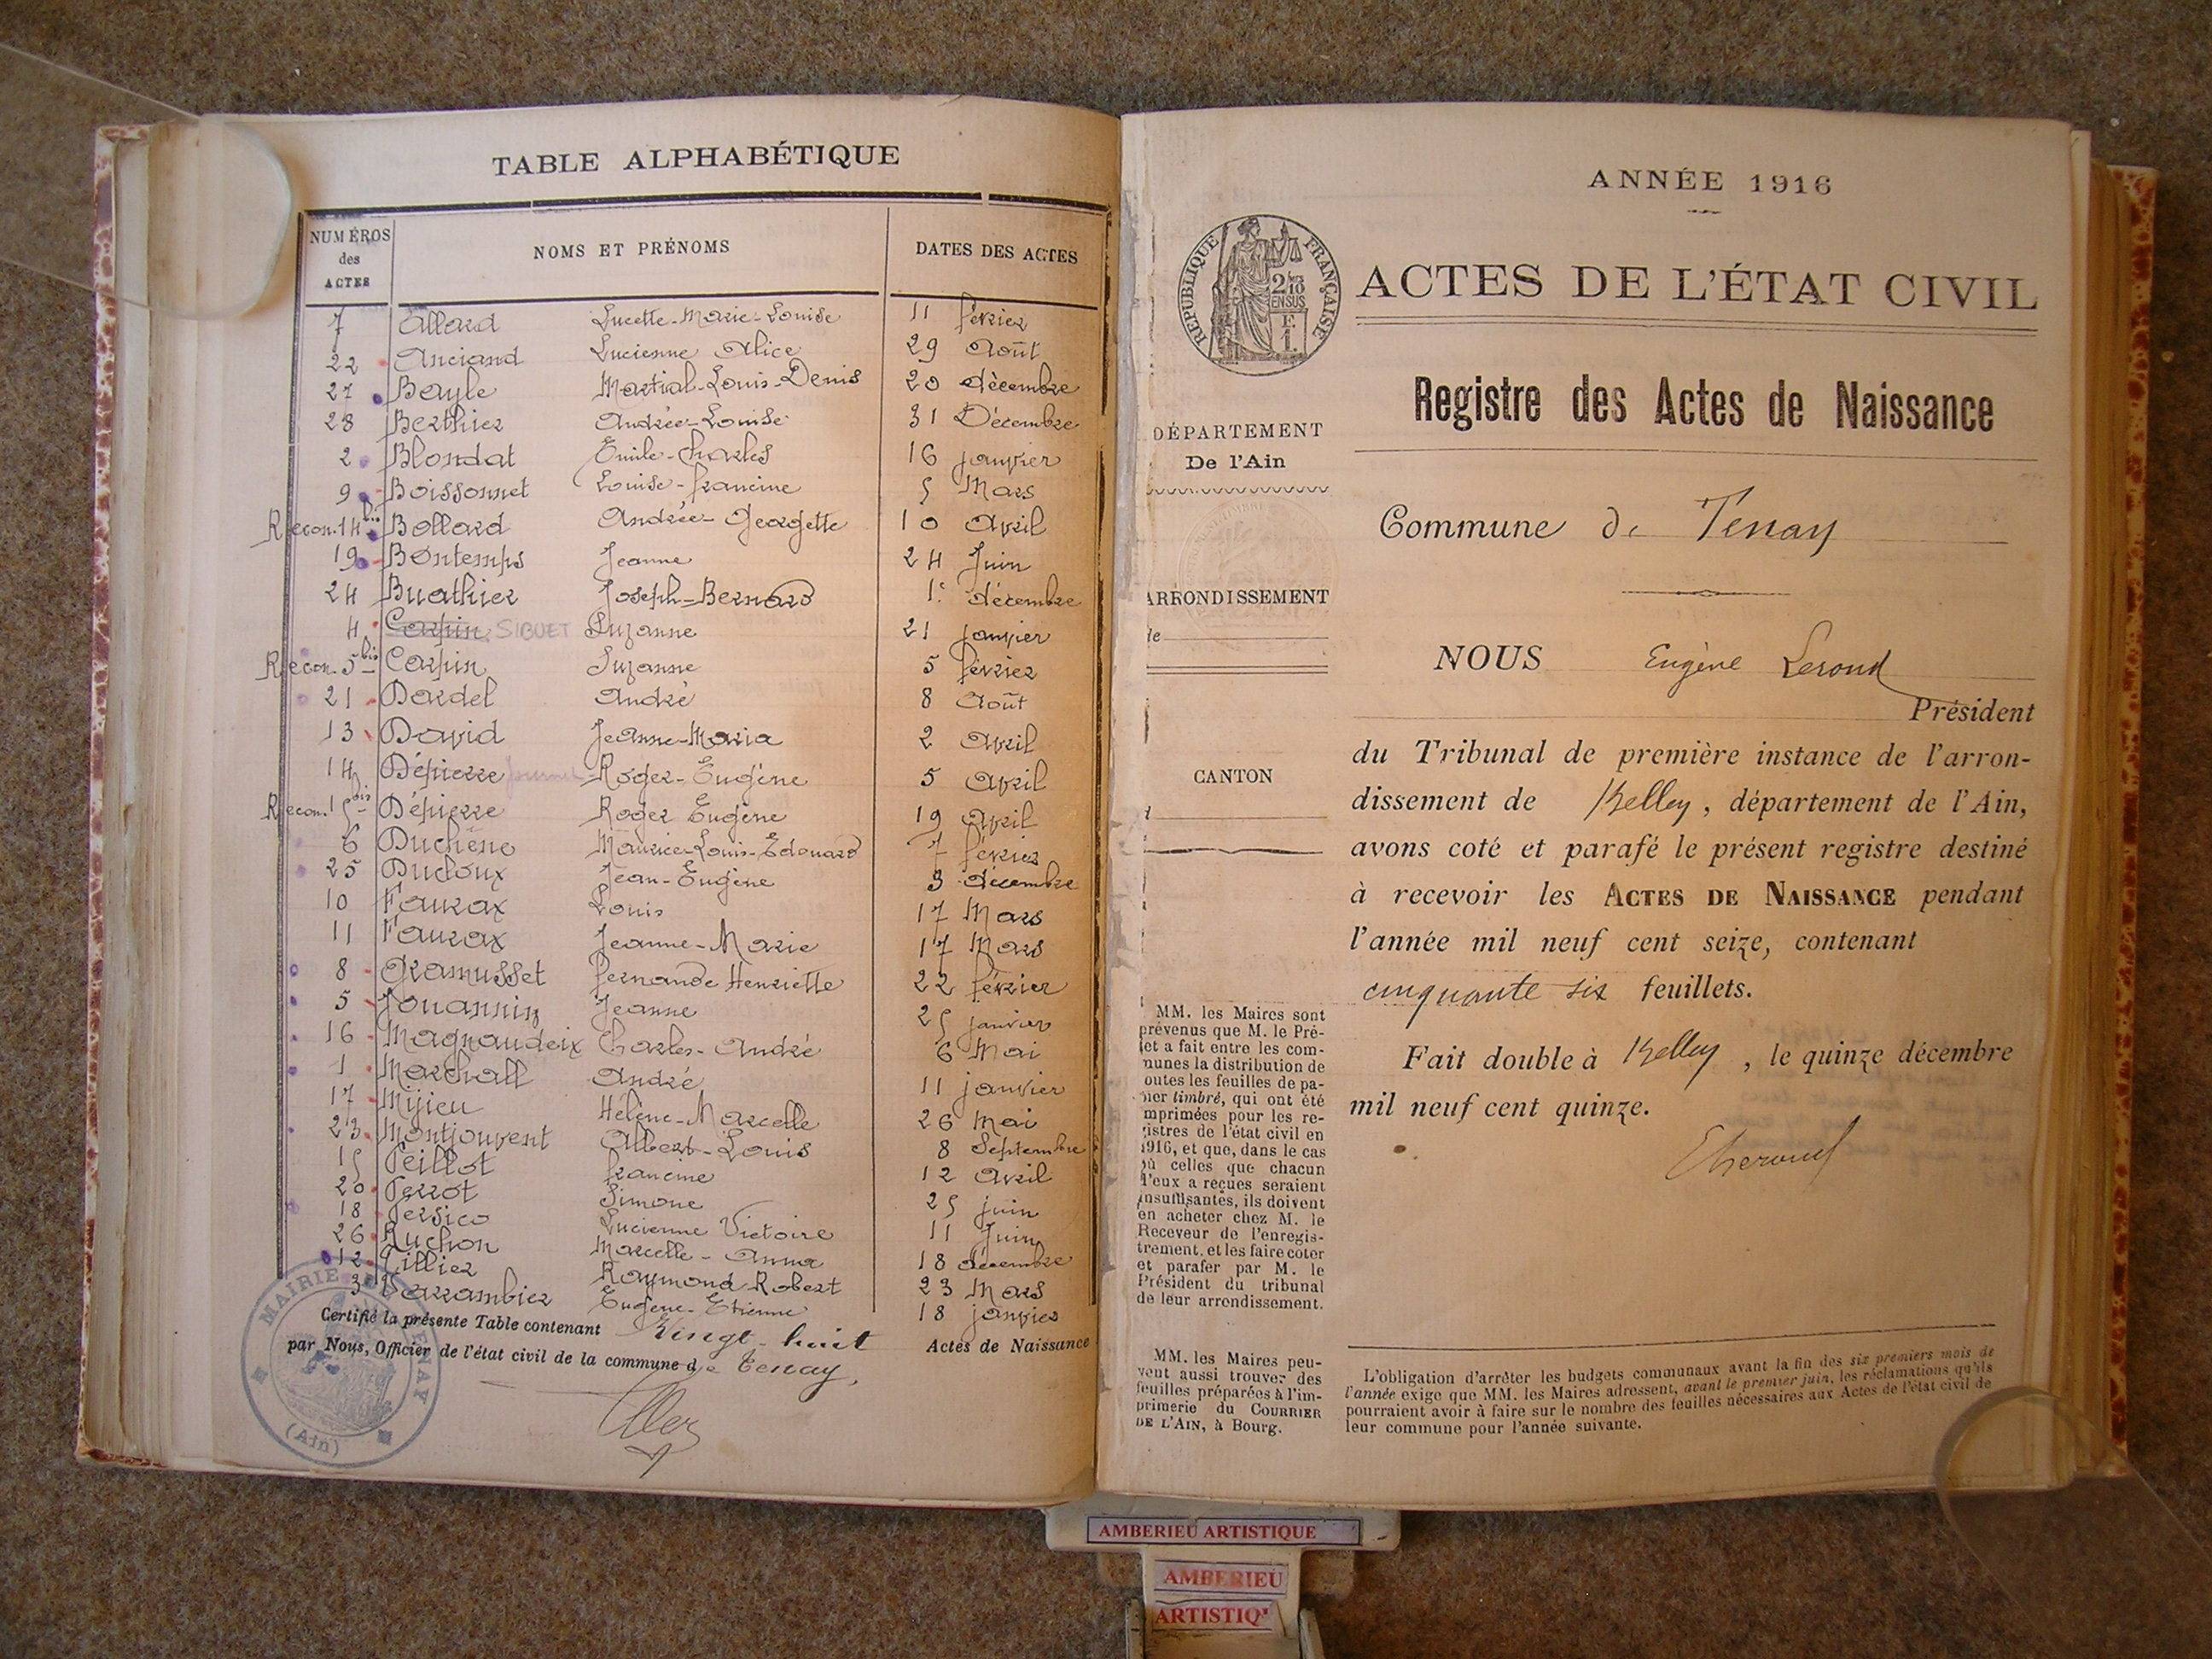 TABLE ALPHABÉTIQUE
NUMÉROS des ACTES NOMS ET PRÉNOMS DATES DES ACTES
7 Allard Lucette-Marie-Louise 11 février
22 Anciand Lucienne Alice 29 Août
27 Bayle Martial-Louis-Denis 20 décembre
28 Berthier Andrée-Louise 31 Décembre
2 Blondat Émile-Charles 16 janvier
9 Boissonnet Louise-francine 5 Mars
Recon. 14 bis Bollard Andrée-Georgette 10 Avril
19 Bontemps Jeanne 24 Juin
24 Buathier Joseph-Bernard 1. décembre
4 Carpin SIBUET Suzanne 21 janvier
Recon. 5 bis Carpin Suzanne 5 février
21 Dardel André 8 Août
13 David Jeanne-Maria 2 Avril
14 Dépierre Roger-Eugène 5 Avril
Recon. 15 bis Dépierre Roger Eugène 19 Avril
6 Duchêne Maurice-Louis-Edouard 7 février
25 Ducloux Jean-Eugène 3 décembre
10 Faurax Louis 17 Mars
11 Faurax Jeanne-Marie 17 Mars
8 Gramusset Fernande Henriette 22 février
5 Jouannin Jeanne 25 janvier
16 Magnaudeix Charles-André 6 Mai
1 Marchall André 11 janvier
17 Mijieu Hélène-Marcelle 26 Mai
23 Montjouvent Albert-Louis 8 Septembre
15 Peillot francine 12 Avril
20 Perrot Simone 25 juin
18 Persico Lucienne Victoire 11 Juin
26 Ruchon Marcelle-Anna 18 décembre
12 Tillier Raymond Robert 23 Mars
3 Varrambier Eugène-Etienne 18 janvier
Certifié la présente Table contenant Vingt-huit Actes de Naissance
par Nous, Officier de l'état civil de la commune de Tenay,
MAIRIE
TENAY
(Ain)
ANNÉE 1916
RÉPUBLIQUE FRANÇAISE
2/10 EN SUS
F. 1.
ACTES DE L'ÉTAT CIVIL
Registre des Actes de Naissance
DÉPARTEMENT
De l'Ain
Commune de Tenay
ARRONDISSEMENT
NOUS Eugène Lerond
Président
du Tribunal de première instance de l'arron-
CANTON
dissement de Belley, département de l'Ain,
avons coté et parafé le présent registre destiné
à recevoir les ACTES DE NAISSANCE pendant
l'année mil neuf cent seize, contenant
cinquante six feuillets.
Fait double à Belley, le quinze décembre
mil neuf cent quinze.
MM. les Maires sont
prévenus que M. le Pré-
fet a fait entre les com-
munes la distribution de
toutes les feuilles de pa-
pier timbré, qui ont été
imprimées pour les re-
gistres de l'état civil en
1916, et que, dans le cas
où celles que chacun
d'eux a reçues seraient
insuffisantes, ils doivent
en acheter chez M. le
Receveur de l'enregis-
trement, et les faire coter
et parafer par M. le
Président du tribunal
de leur arrondissement.
MM. les Maires peu-
vent aussi trouver des
feuilles préparées à l'im-
primerie du COURRIER
DE L'AIN, à Bourg.
L'obligation d'arrêter les budgets communaux avant la fin des six premiers mois de
l'année exige que MM. les Maires adressent, avant le premier juin, les réclamations qu'ils
pourraient avoir à faire sur le nombre des feuilles nécessaires aux Actes de l'état civil de
leur commune pour l'année suivante.
AMBERIEU ARTISTIQUE
AMBERIEU
ARTISTIQ'